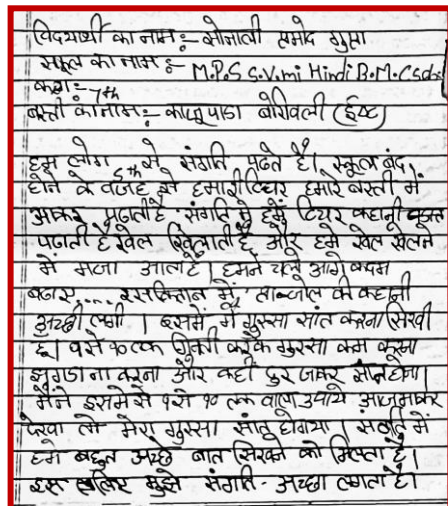 विद्यार्थी का नाम :- सोनाली प्रमोद गुप्ता
स्कूल का नाम :- M.P.S S.V.mi Hindi B.M.C
कक्षा :- 7th
बस्ती का नाम :- काजूपाडा बोरिवली (ईस्ट)
हम लोग 5th से संगति पढते है। स्कूल बंद
होने के वजह से हमारी टिचर हमारे बस्ती में
आकर पढाती है संगति मे हमे टिचर कहानी
पढाती है खेल खिलाती है और हमे खेल खेलने
में मजा आता है। हमने चलो आगे कदम
बढाए.... इस किताब में, की कहानी
अच्छी लगी। इसमें मै गुस्सा सांत करना सिखी
हूँ। १ से १० तक गिनती करके गुस्सा कम करना
झगडा ना करना और कही दुर जाकर
मैने इसमे से १ से १० तक वाला उपाये आजमाकर
देखा तो मेरा गुस्सा सांत होगया। संगति में
हमे बहुत अच्छे बात सिखने को मिलता है।
इस लिए मुझे संगति - अच्छा लगता है।